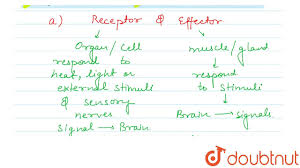 a) Receptor & Effector
Organ/Cell muscle/gland
respond to
heat, light or respond
external stimuli to Stimuli
& sensory
nerves Brain → Signals
Signal → Brain
doubtnut